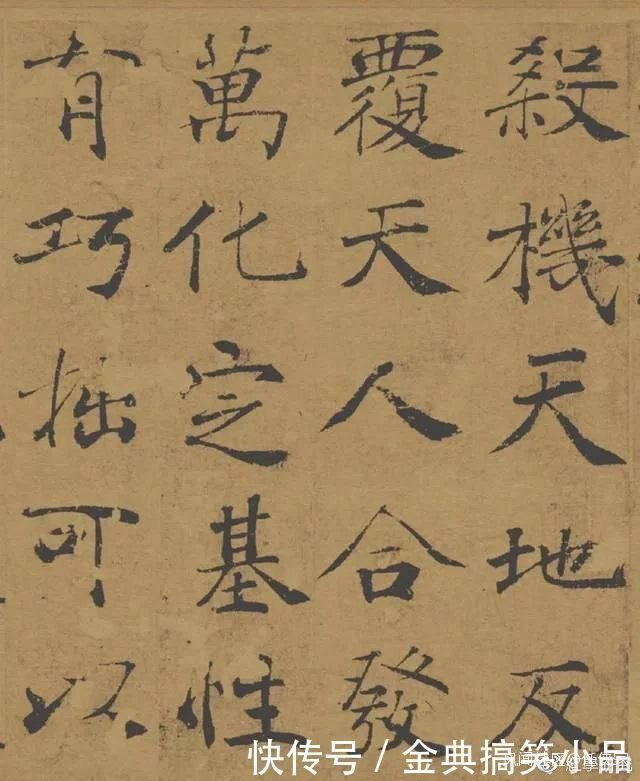 殺機天地反
覆天人合發
萬化之基性
有巧拙可以
快传号/金典搞笑小品